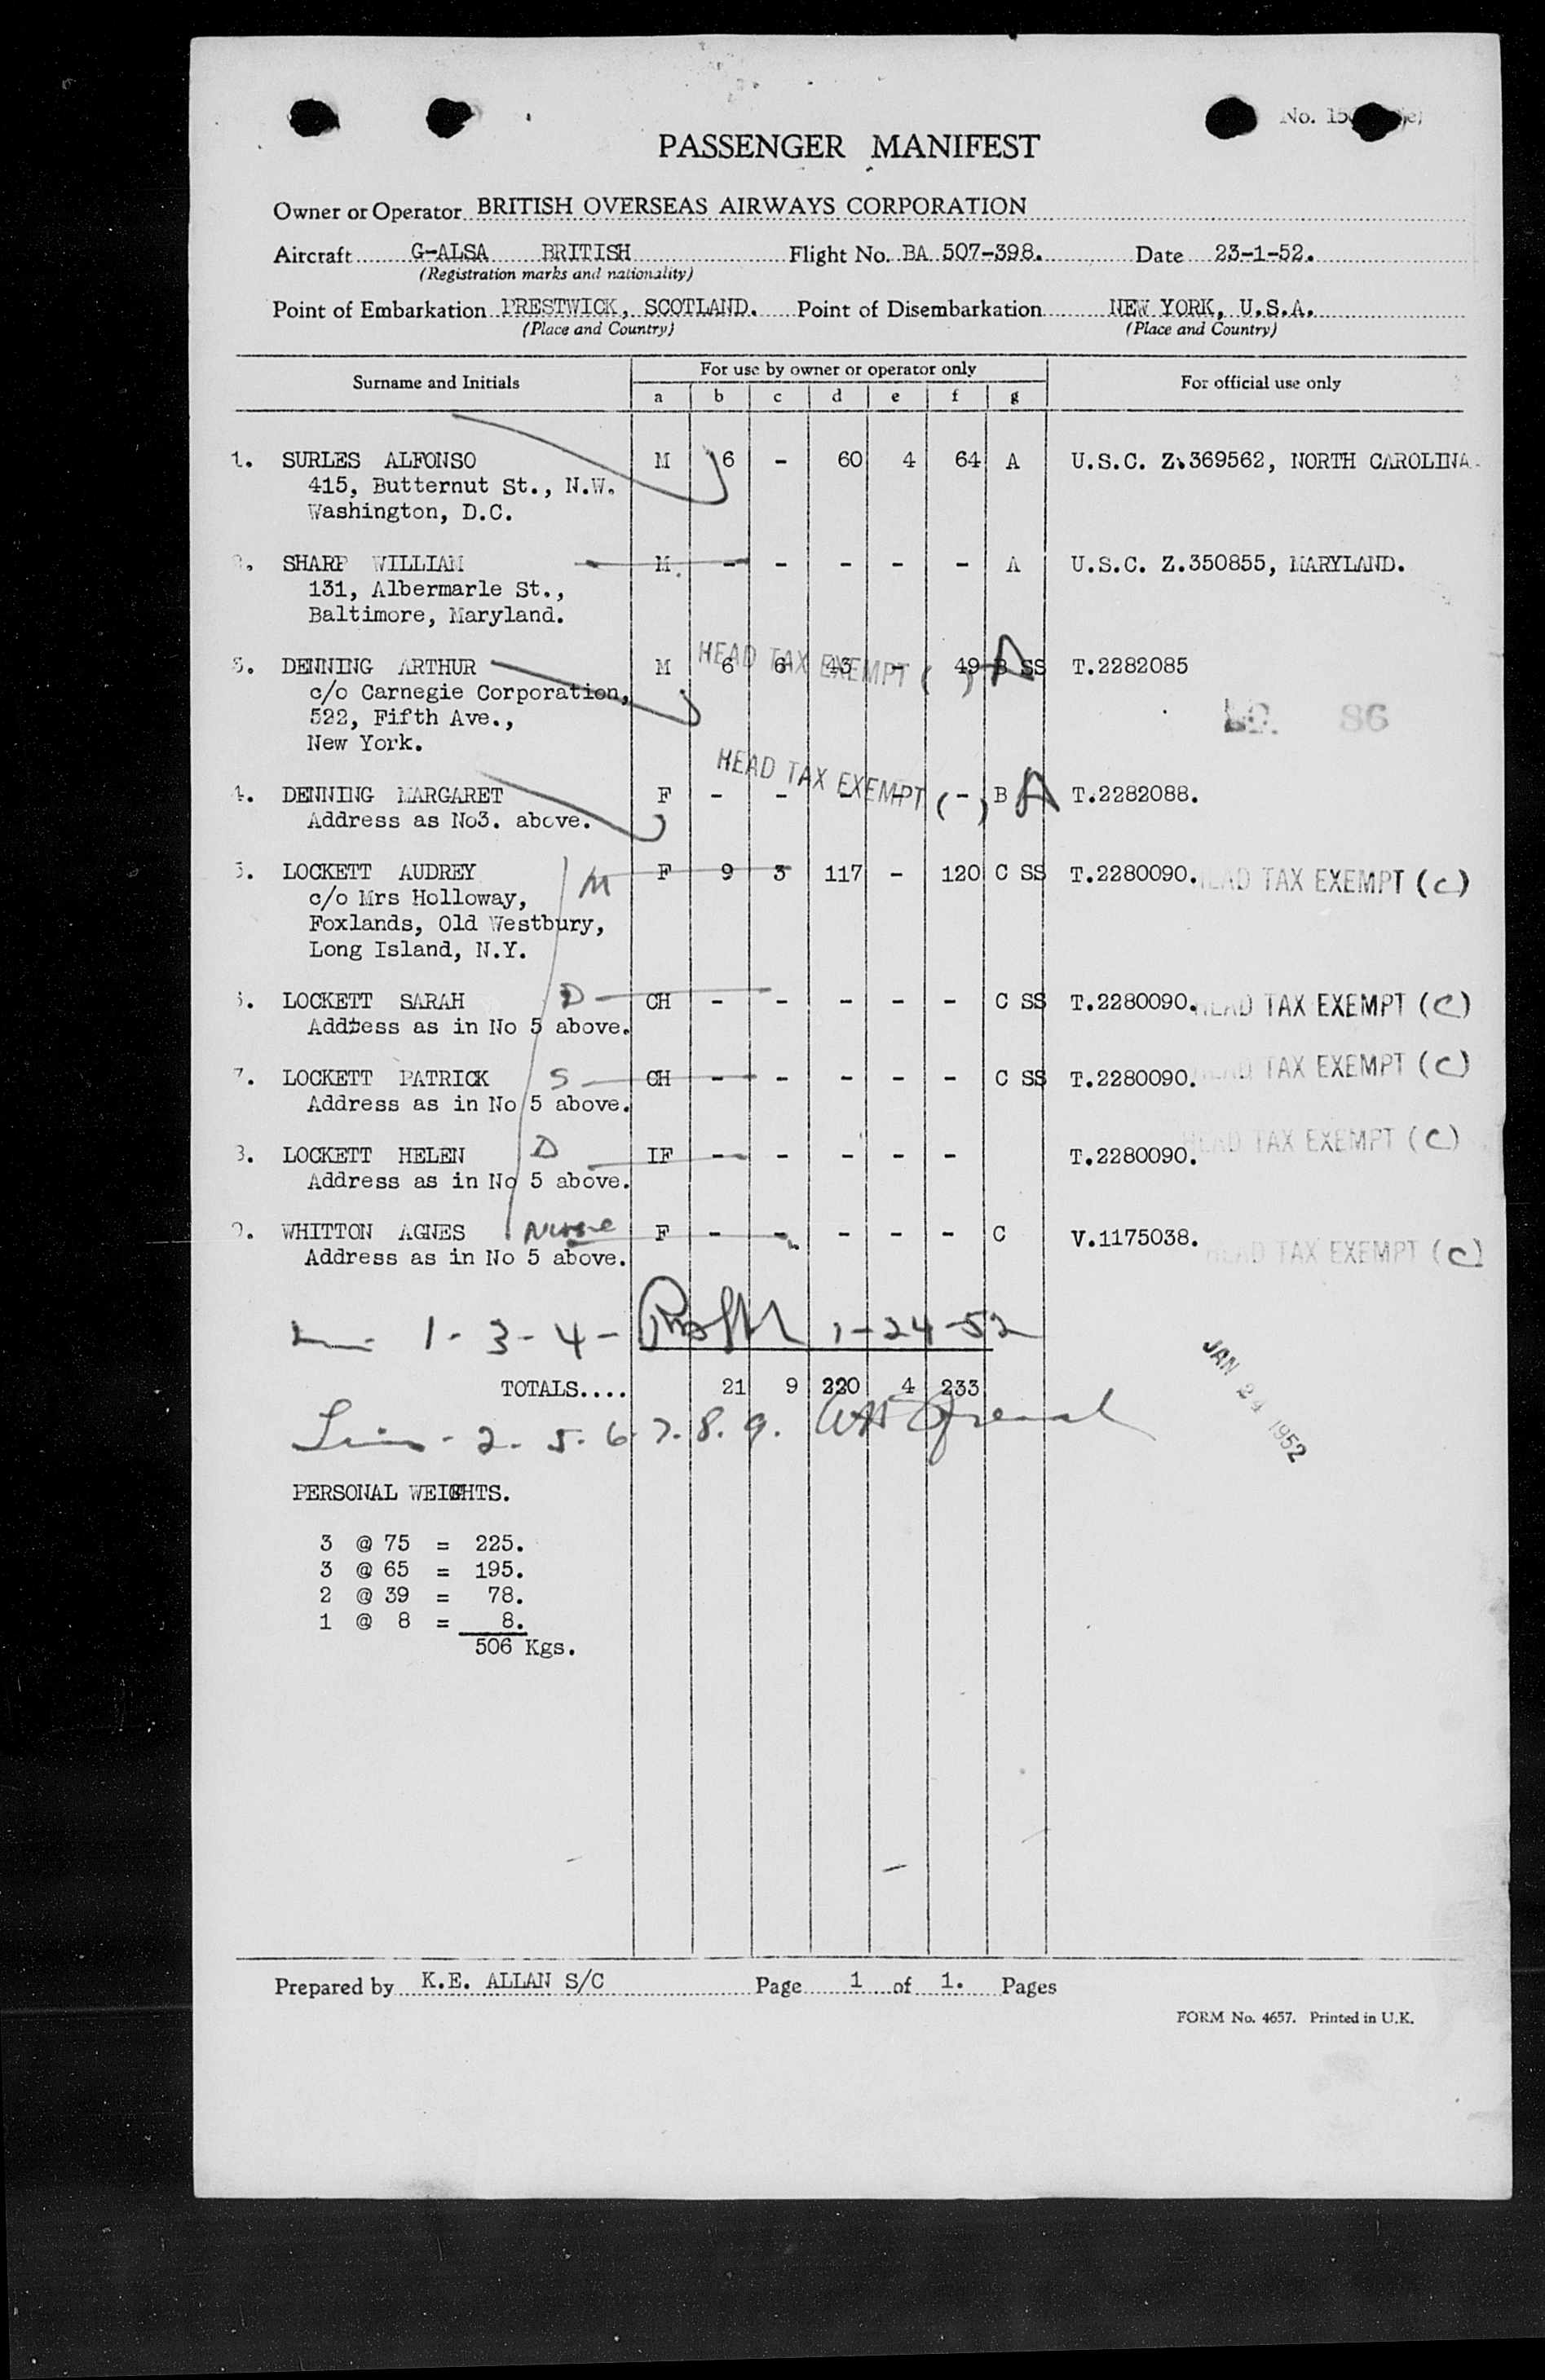 No. 15
PASSENGER MANIFEST
Owner or Operator BRITISH OVERSEAS AIRWAYS CORPORATION
Aircraft G-ALSA BRITISH Flight No. BA 507-398. Date 23-1-52.
(Registration marks and nationality)
Point of Embarkation PRESTWICK, SCOTLAND. Point of Disembarkation NEW YORK, U.S.A.
(Place and Country) (Place and Country)
Surname and Initials For use by owner or operator only For official use only
a b c d e f g
1. SURLES ALFONSO M 6 - 60 4 64 A U.S.C. Z.369562, NORTH CAROLINA.
415, Butternut St., N.W.
Washington, D.C.
2. SHARP WILLIAM M. - - - - - A U.S.C. Z.350855, MARYLAND.
131, Albermarle St.,
Baltimore, Maryland.
HEAD TAX EXEMPT ( )
3. DENNING ARTHUR M 6 6 43 - 49 B SS A T.2282085
c/o Carnegie Corporation,
522, Fifth Ave., 86
New York.
HEAD TAX EXEMPT ( )
4. DENNING MARGARET F - - - - - B A T.2282088.
Address as No3. above.
5. LOCKETT AUDREY M F 9 3 117 - 120 C SS T.2280090. HEAD TAX EXEMPT (C)
c/o Mrs Holloway,
Foxlands, Old Westbury,
Long Island, N.Y.
6. LOCKETT SARAH D CH - - - - - C SS T.2280090. HEAD TAX EXEMPT (C)
Addtess as in No 5 above.
7. LOCKETT PATRICK S CH - - - - - C SS T.2280090. HEAD TAX EXEMPT (C)
Address as in No 5 above.
8. LOCKETT HELEN D IF - - - - - T.2280090. HEAD TAX EXEMPT (C)
Address as in No 5 above.
9. WHITTON AGNES Nurse F - - - - - C V.1175038. HEAD TAX EXEMPT (C)
Address as in No 5 above.
1-3-4- 1-24-52
JAN 24 1952
TOTALS.... 21 9 220 4 233
2. 5. 6. 7. 8. 9.
PERSONAL WEIGHTS.
3 @ 75 = 225.
3 @ 65 = 195.
2 @ 39 = 78.
1 @ 8 = 8.
506 Kgs.
Prepared by K.E. ALLAN S/C Page 1 of 1. Pages
FORM No. 4657. Printed in U.K.